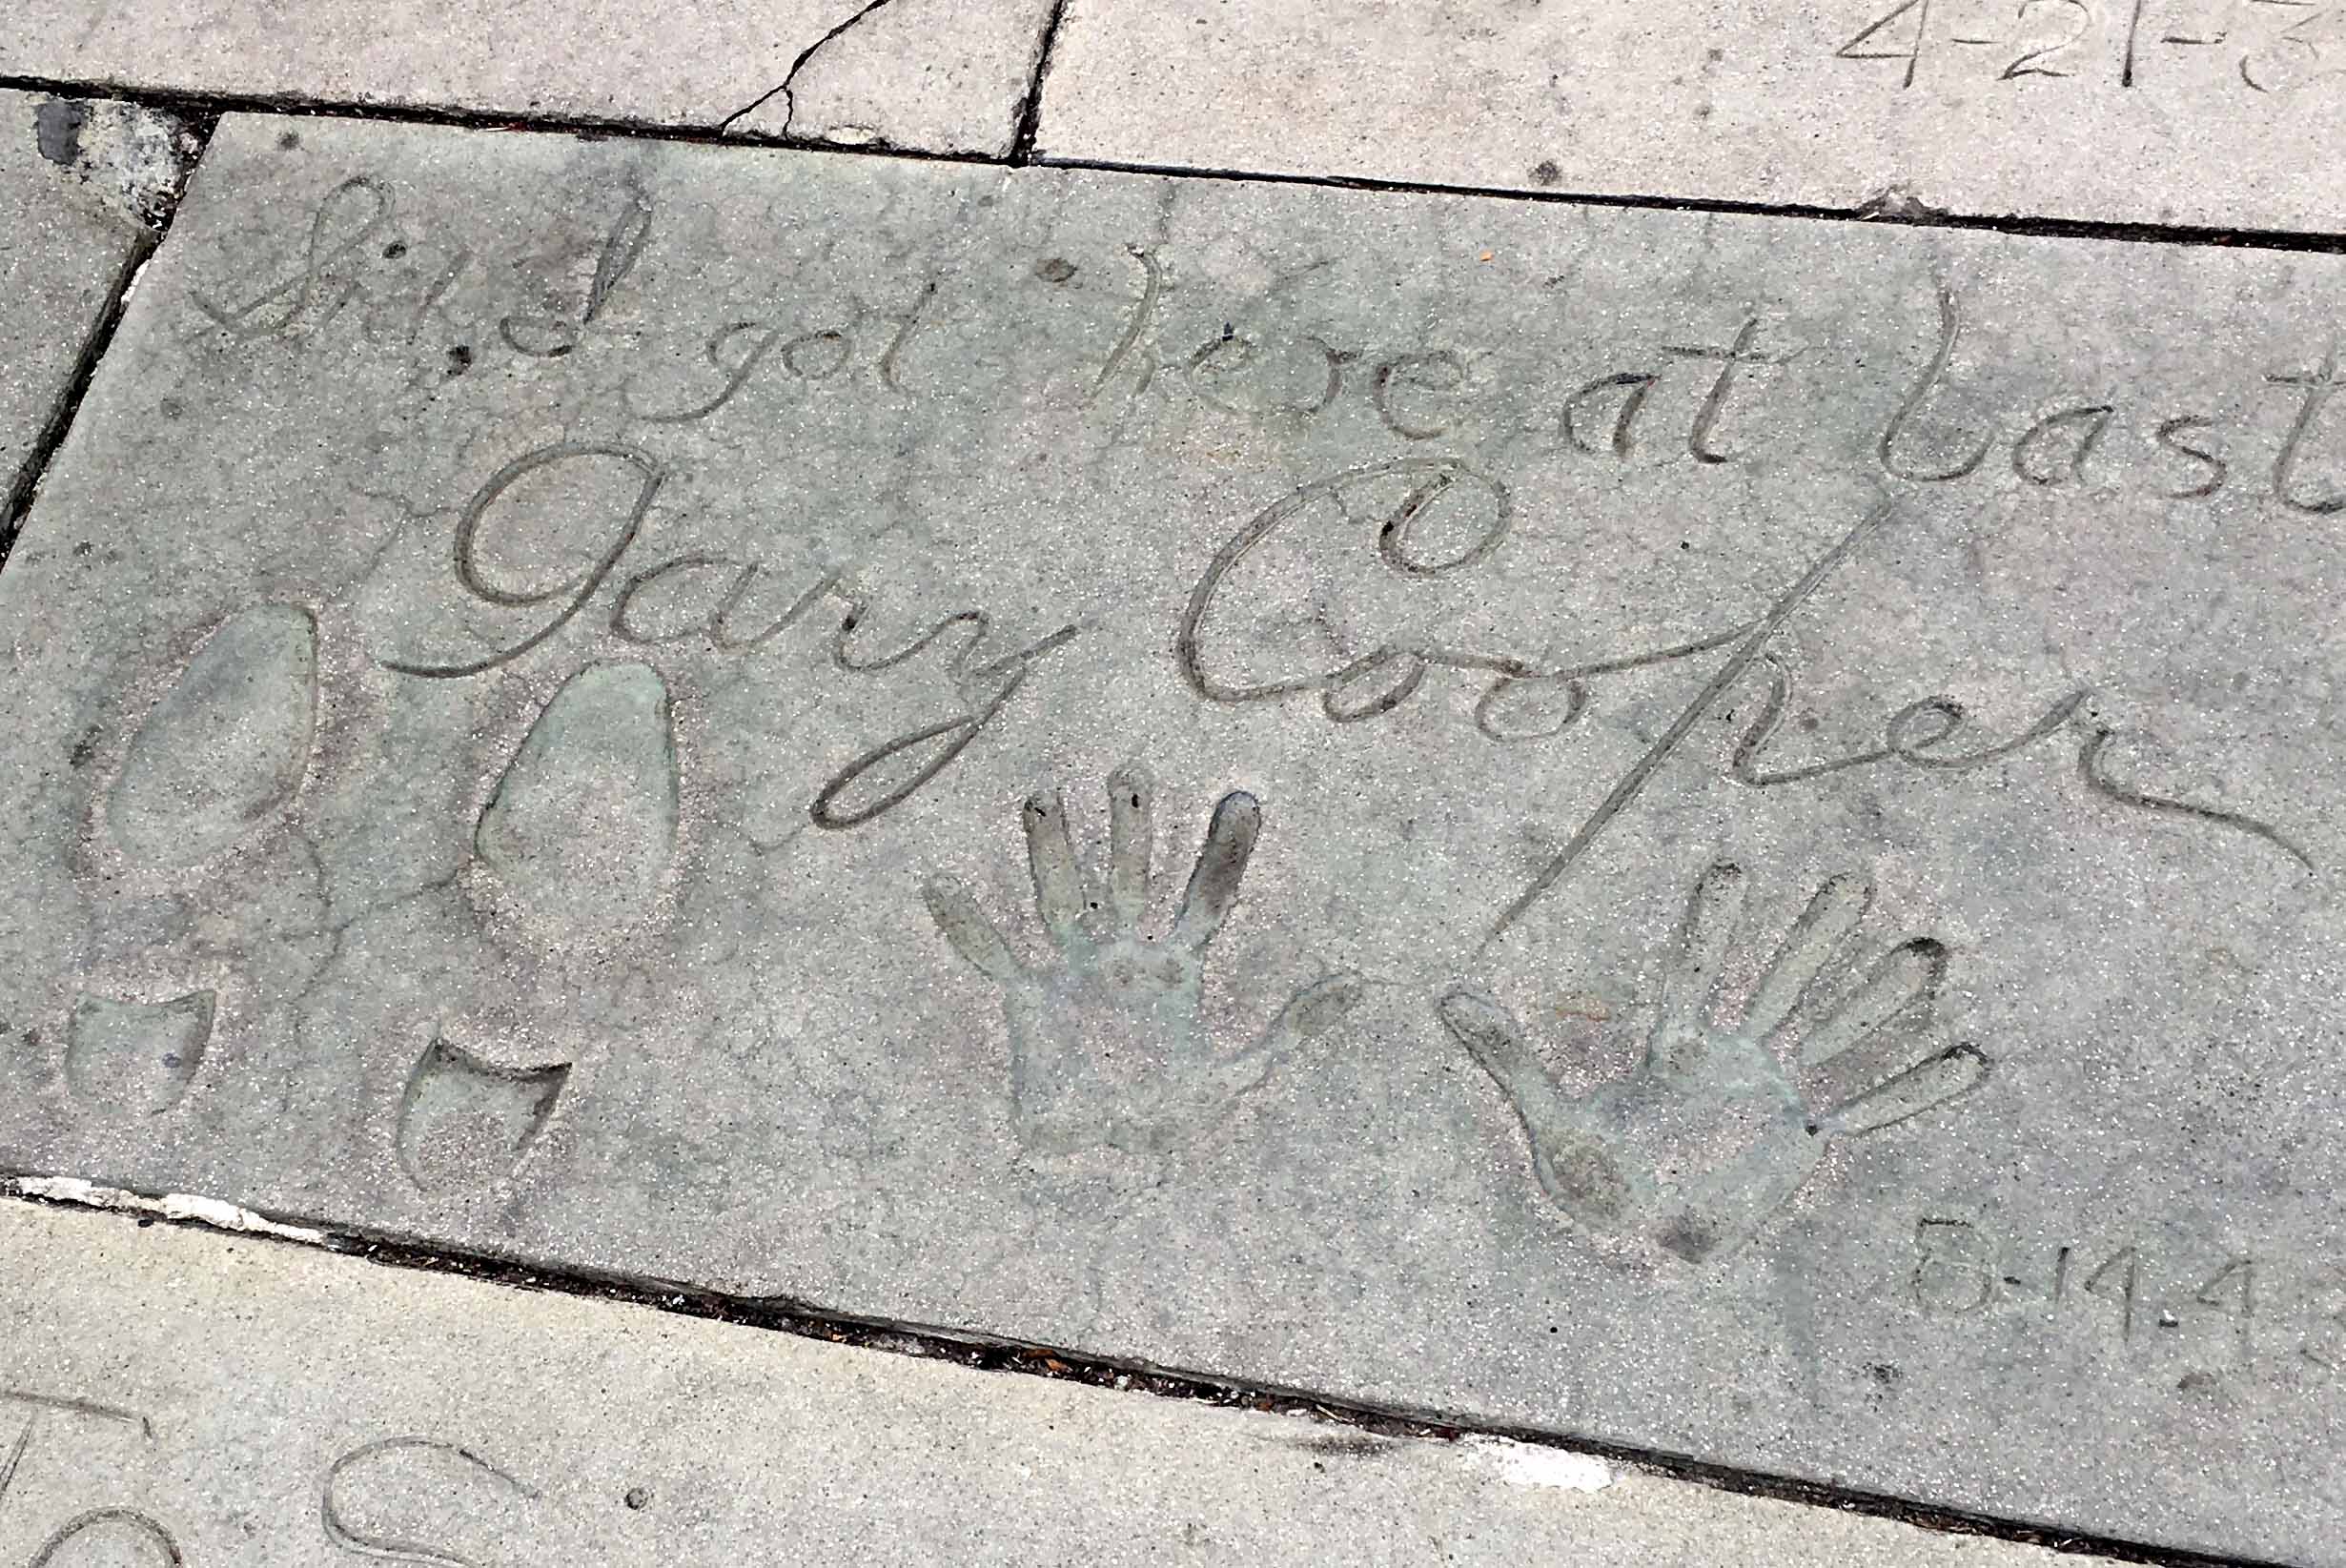 4-21-3
Sid I got here at last
Gary Cooper
8-14-4
T S